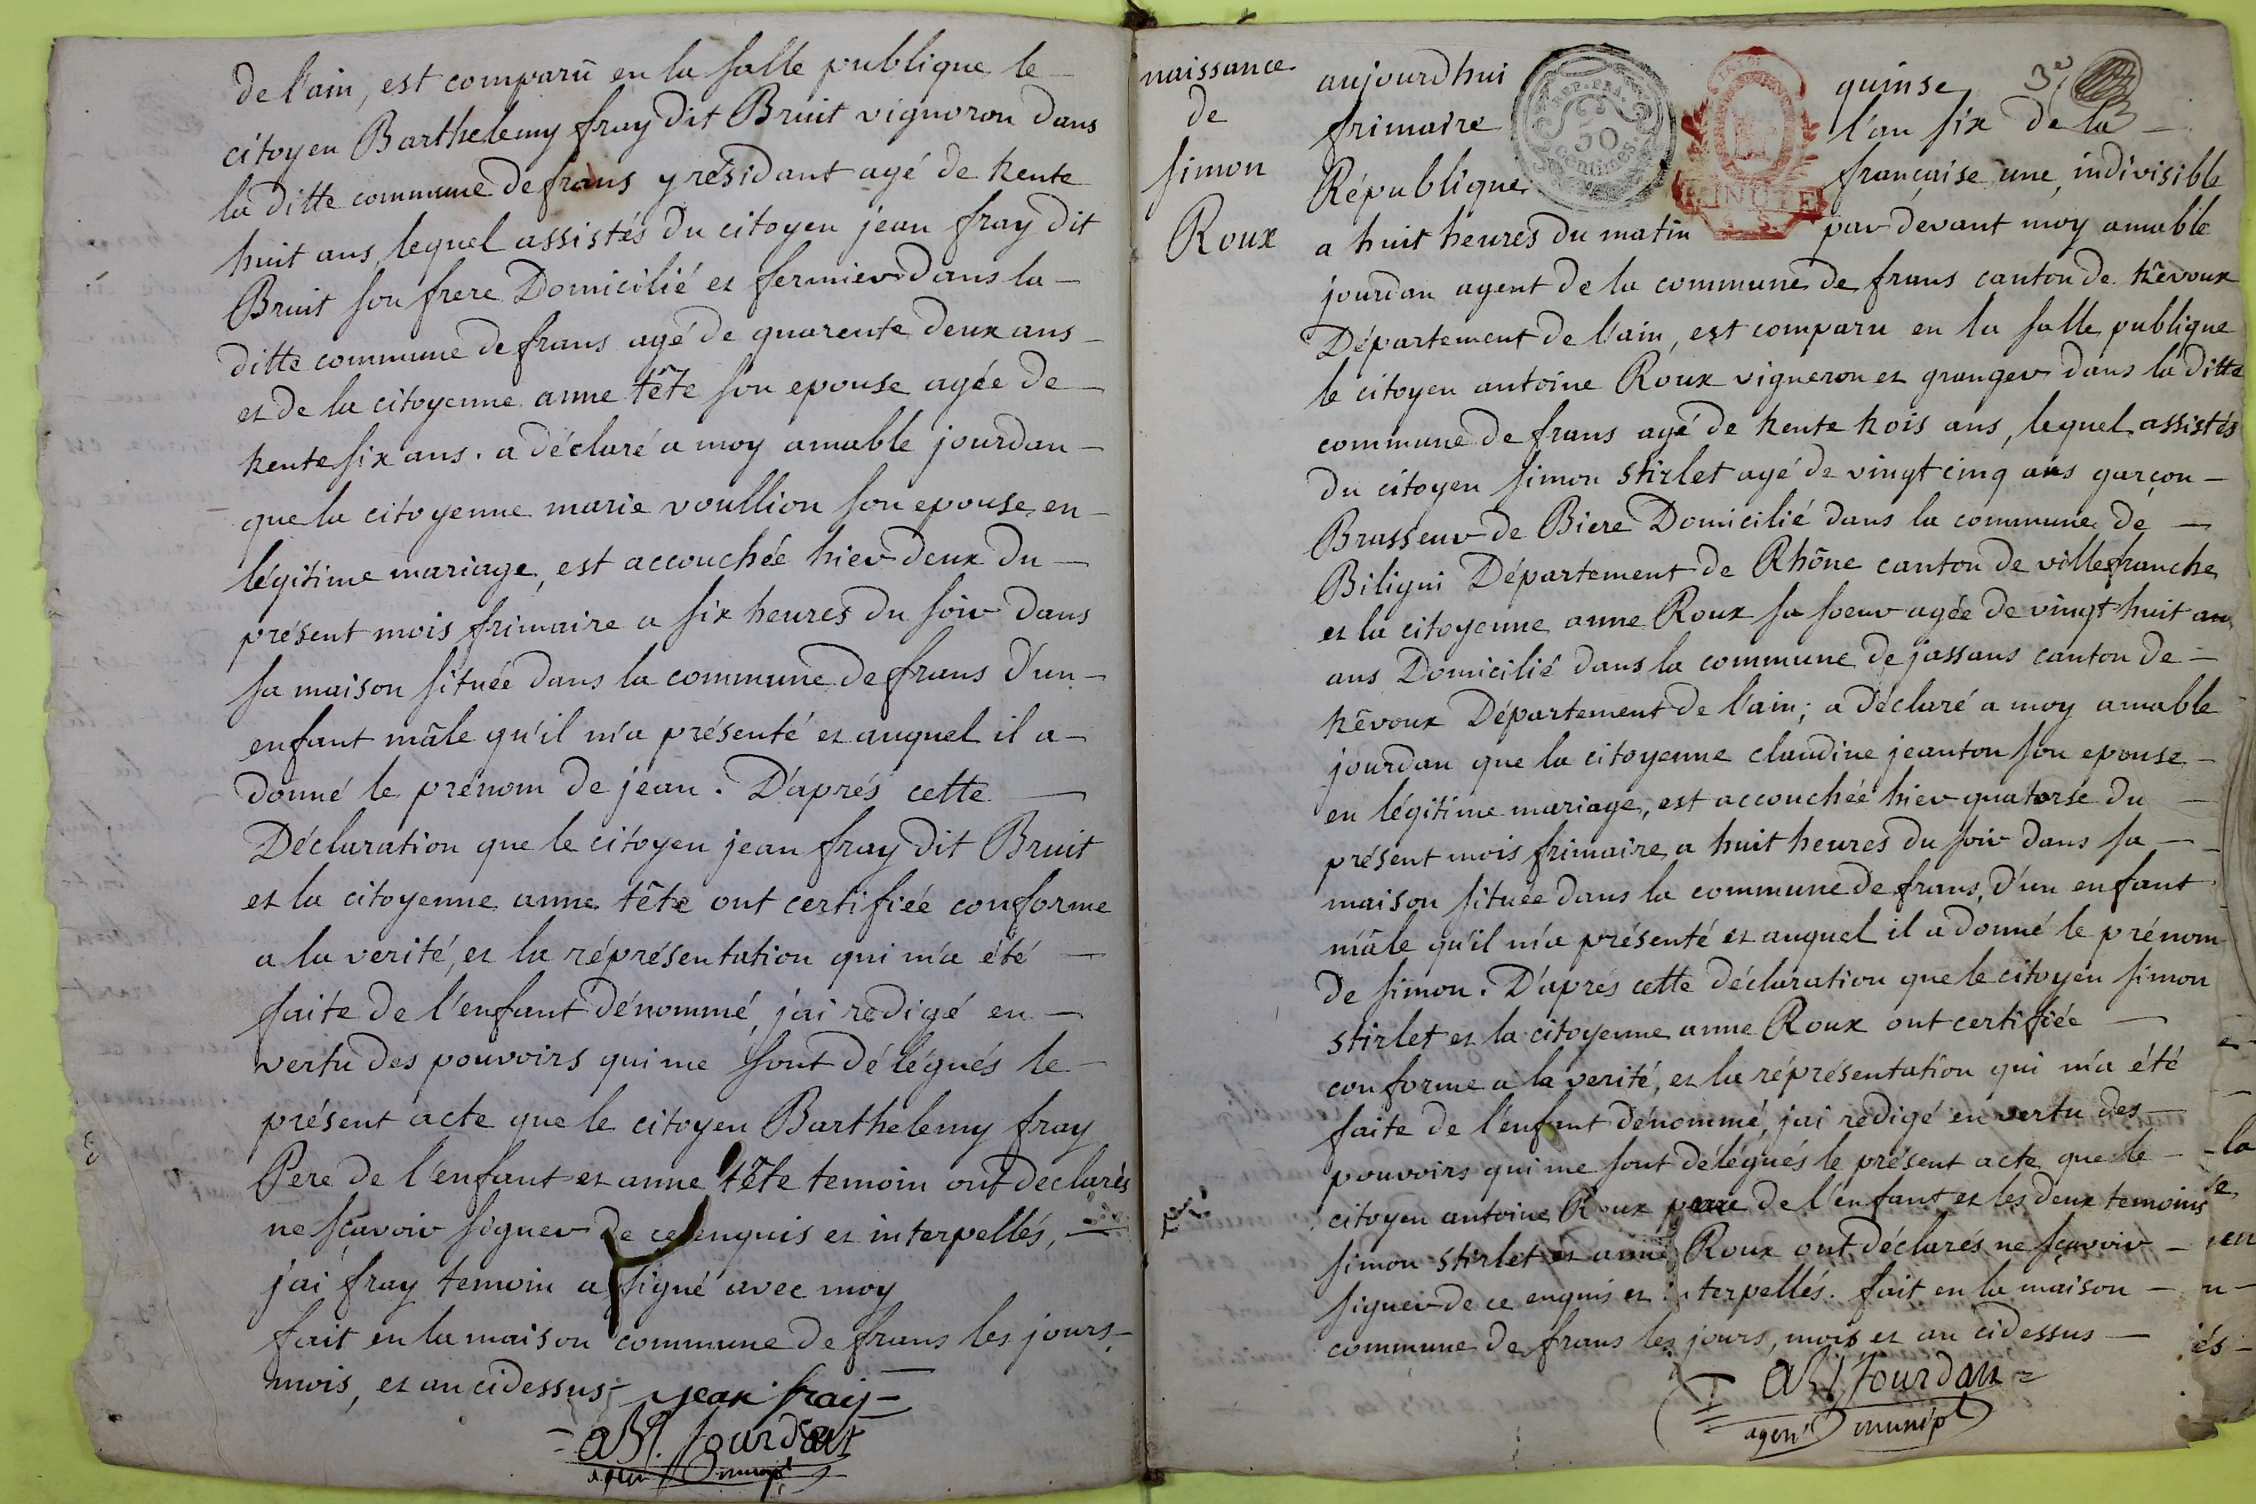 de l'ain, est comparu en la salle publique le
citoyen Barthelemy fray dit Bruit vigneron dans
la ditte commune de frans y résidant agé de trente
huit ans, lequel assistés du citoyen jean fray dit
Bruit son frere Domicilié et fermier dans la
ditte commune de frans agé de quarente deux ans
et de la citoyenne anne tête son epouse agée de
trente six ans. a déclaré a moy amable jourdan
que la citoyenne marie voullion son epouse en
légitime mariage, est accouchée hier deux du
présent mois frimaire a six heures du soir dans
sa maison située dans la commune de frans d'un
enfant mâle qu'il m'a présenté et auquel il a
donné le prénom de jean. D'aprés cette
Déclaration que le citoyen jean fray dit Bruit
et la citoyenne anne tête ont certifiée conforme
a la verité, et la réprésentation qui m'a été
faite de l'enfant dénommé, j'ai redigé en
vertu des pouvoirs qui me sont délégués le
présent acte que le citoyen Barthelemy fray
Pere de l'enfant et anne tête temoin ont declarés
ne sçavoir signer de ce enquis et interpellés,
j'ai fray temoin a signé avec moy
fait en la maison commune de frans les jours,
mois, et an cidessus, jean fraij
abl. Jourdan
agent municipl
naissance
de
simon
Roux
REP. FRA.
50
centimes
MINUTE
3e
aujourdhui quinse
frimaire l'an six de la
République française une, indivisible
a huit heures du matin par devant moy amable
jourdan agent de la commune de frans canton de trêvoux
Département de l'ain, est comparu en la salle publique
le citoyen antoine Roux vigneron et granger dans la ditte
commune de frans agé de trente trois ans, lequel assistés
du citoyen simon stirlet agé de vingt cinq ans garçon
Brasseur de Biere Domicilié dans la commune de
Biligni Département de Rhône canton de villefranche
et la citoyenne anne Roux sa soeur agée de vingt huit ans
ans Domicilié dans la commune de jassans canton de
trêvoux Département de l'ain; a déclaré a moy amable
jourdan que la citoyenne claudine jeanton son epouse
en légitime mariage, est accouchée hier quatorse du
présent mois frimaire a huit heures du soir dans sa
maison située dans la commune de frans, d'un enfant
mâle qu'il m'a présenté et auquel il a donné le prénom
de simon. D'aprés cette déclaration que le citoyen simon
stirlet et la citoyenne anne Roux ont certifiée
conforme a la verité, et la réprésentation qui m'a été
faite de l'enfant dénommé, j'ai redigé en vertu des
pouvoirs qui me sont délégués le présent acte que le
citoyen antoine Roux pere de l'enfant et les deux temoins
simon stirlet et anne Roux ont déclarés ne sçavoir
signer de ce enquis et interpellés. fait en la maison
commune de frans les jours, mois et an cidessus
abl Jourdan
agent municipl